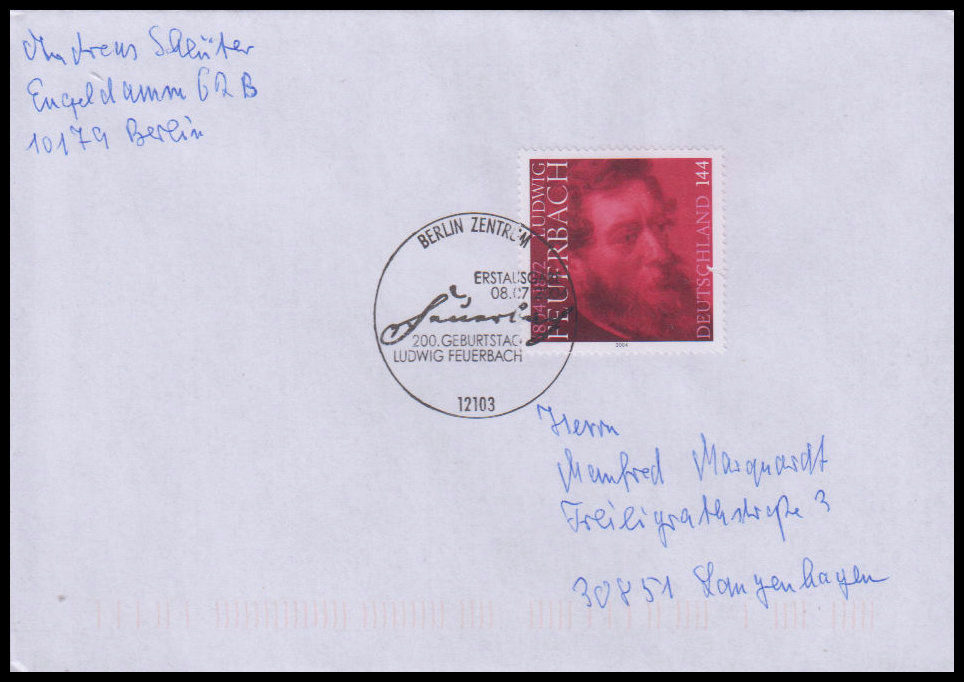 Andreas Schlüter
Engeldamm 62 B
10179 Berlin
LUDWIG
FEUERBACH
1804-1872
DEUTSCHLAND 144
2004
BERLIN ZENTRUM
ERSTAUSGABE
08.07
200. GEBURTSTAG
LUDWIG FEUERBACH
12103
Herrn
Manfred Marquardt
Freiligrathstraße 3
30851 Langenhagen